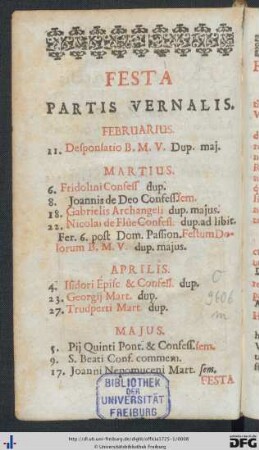 FESTA
PARTIS VERNALIS.
FEBRUARIUS.
11. Desponsatio B. M. V. Dup. maj.
MARTIUS.
6. Fridolini Confess dup.
8. Joannis de Deo Confess. sem.
18. Gabrielis Archangeli dup. majus.
22. Nicolai de Flüe Confess. dup. ad libit.
Fer. 6. post Dom. Passion. Festum Do-
lorum B. M. V. dup. majus.
APRILIS.
4. Isidori Episc & Confess. dup.
23. Georgij Mart. dup.
27. Trudperti Mart. dup.
MAJUS.
5. Pij Quinti Pont. & Confess. sem.
9. S. Beati Conf. commem.
17. Joanni Nepomuceni Mart. sem.
FESTA
O
9606
m
BIBLIOTHEK
DER
UNIVERSITÄT
FREIBURG
http://dl.ub.uni-freiburg.de/diglit/officia1725-1/0008
© Universitätsbibliothek Freiburg
gefördert durch die
DFG